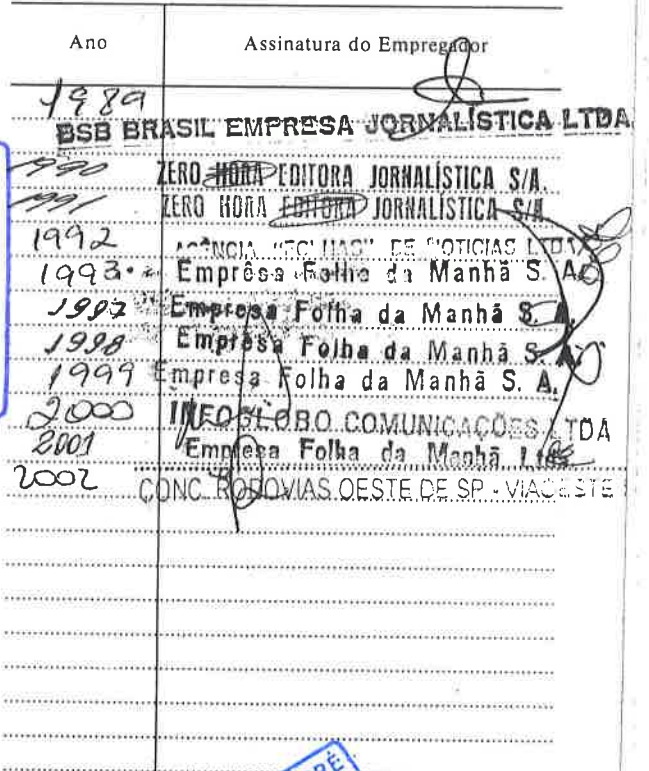 Ano Assinatura do Empregador
1989
BSB BRASIL EMPRESA JORNALÍSTICA LTDA
1990 ZERO HORA EDITORA JORNALÍSTICA S/A.
1991 ZERO HORA EDITORA JORNALÍSTICA S/A
1992 AGÊNCIA "FOLHAS" DE NOTICIAS LTDA
1993 Emprêsa Folha da Manhã S. A.
1997 Empresa Folha da Manhã S. A.
1998 Empresa Folha da Manhã S. A.
1999 Empresa Folha da Manhã S. A.
2000 INFOGLOBO COMUNICAÇÕES LTDA
2001 Empresa Folha da Manhã Ltda
2002 CONC. RODOVIAS OESTE DE SP - VIAOESTE